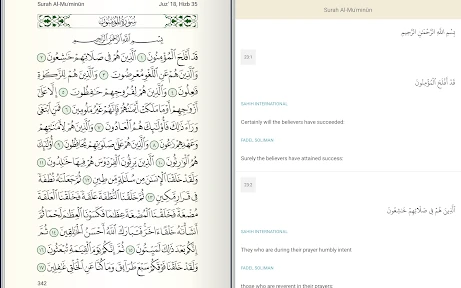 Surah Al-Mu'minūn Juz' 18, Hizb 35
سُورَةُ المُؤْمِنُونَ
بِسْمِ ٱللَّهِ ٱلرَّحْمَٰنِ ٱلرَّحِيمِ
قَدْ أَفْلَحَ ٱلْمُؤْمِنُونَ ١ ٱلَّذِينَ هُمْ فِى صَلَاتِهِمْ خَٰشِعُونَ ٢
وَٱلَّذِينَ هُمْ عَنِ ٱللَّغْوِ مُعْرِضُونَ ٣ وَٱلَّذِينَ هُمْ لِلزَّكَوٰةِ
فَٰعِلُونَ ٤ وَٱلَّذِينَ هُمْ لِفُرُوجِهِمْ حَٰفِظُونَ ٥ إِلَّا عَلَىٰٓ
أَزْوَٰجِهِمْ أَوْ مَا مَلَكَتْ أَيْمَٰنُهُمْ فَإِنَّهُمْ غَيْرُ مَلُومِينَ ٦ فَمَنِ ٱبْتَغَىٰ
وَرَآءَ ذَٰلِكَ فَأُو۟لَٰٓئِكَ هُمُ ٱلْعَادُونَ ٧ وَٱلَّذِينَ هُمْ لِأَمَٰنَٰتِهِمْ
وَعَهْدِهِمْ رَٰعُونَ ٨ وَٱلَّذِينَ هُمْ عَلَىٰ صَلَوَٰتِهِمْ يُحَافِظُونَ ٩ أُو۟لَٰٓئِكَ
هُمُ ٱلْوَٰرِثُونَ ١٠ ٱلَّذِينَ يَرِثُونَ ٱلْفِرْدَوْسَ هُمْ فِيهَا خَٰلِدُونَ ١١
وَلَقَدْ خَلَقْنَا ٱلْإِنسَٰنَ مِن سُلَٰلَةٍ مِّن طِينٍ ١٢ ثُمَّ جَعَلْنَٰهُ نُطْفَةً
فِى قَرَارٍ مَّكِينٍ ١٣ ثُمَّ خَلَقْنَا ٱلنُّطْفَةَ عَلَقَةً فَخَلَقْنَا ٱلْعَلَقَةَ
مُضْغَةً فَخَلَقْنَا ٱلْمُضْغَةَ عِظَٰمًا فَكَسَوْنَا ٱلْعِظَٰمَ لَحْمًا ثُمَّ
أَنشَأْنَٰهُ خَلْقًا ءَاخَرَ فَتَبَارَكَ ٱللَّهُ أَحْسَنُ ٱلْخَٰلِقِينَ ١٤ ثُمَّ
إِنَّكُم بَعْدَ ذَٰلِكَ لَمَيِّتُونَ ١٥ ثُمَّ إِنَّكُمْ يَوْمَ ٱلْقِيَٰمَةِ تُبْعَثُونَ ١٦
وَلَقَدْ خَلَقْنَا فَوْقَكُمْ سَبْعَ طَرَآئِقَ وَمَا كُنَّا عَنِ ٱلْخَلْقِ غَٰفِلِينَ ١٧
342
Surah Al-Mu'minūn
بِسْمِ ٱللَّهِ ٱلرَّحْمَٰنِ ٱلرَّحِيمِ
23:1
قَدْ أَفْلَحَ ٱلْمُؤْمِنُونَ
SAHIH INTERNATIONAL
Certainly will the believers have succeeded:
FADEL SOLIMAN
Surely the believers have attained success:
23:2
ٱلَّذِينَ هُمْ فِى صَلَاتِهِمْ خَٰشِعُونَ
SAHIH INTERNATIONAL
They who are during their prayer humbly intent
FADEL SOLIMAN
those who are reverent in their prayers;